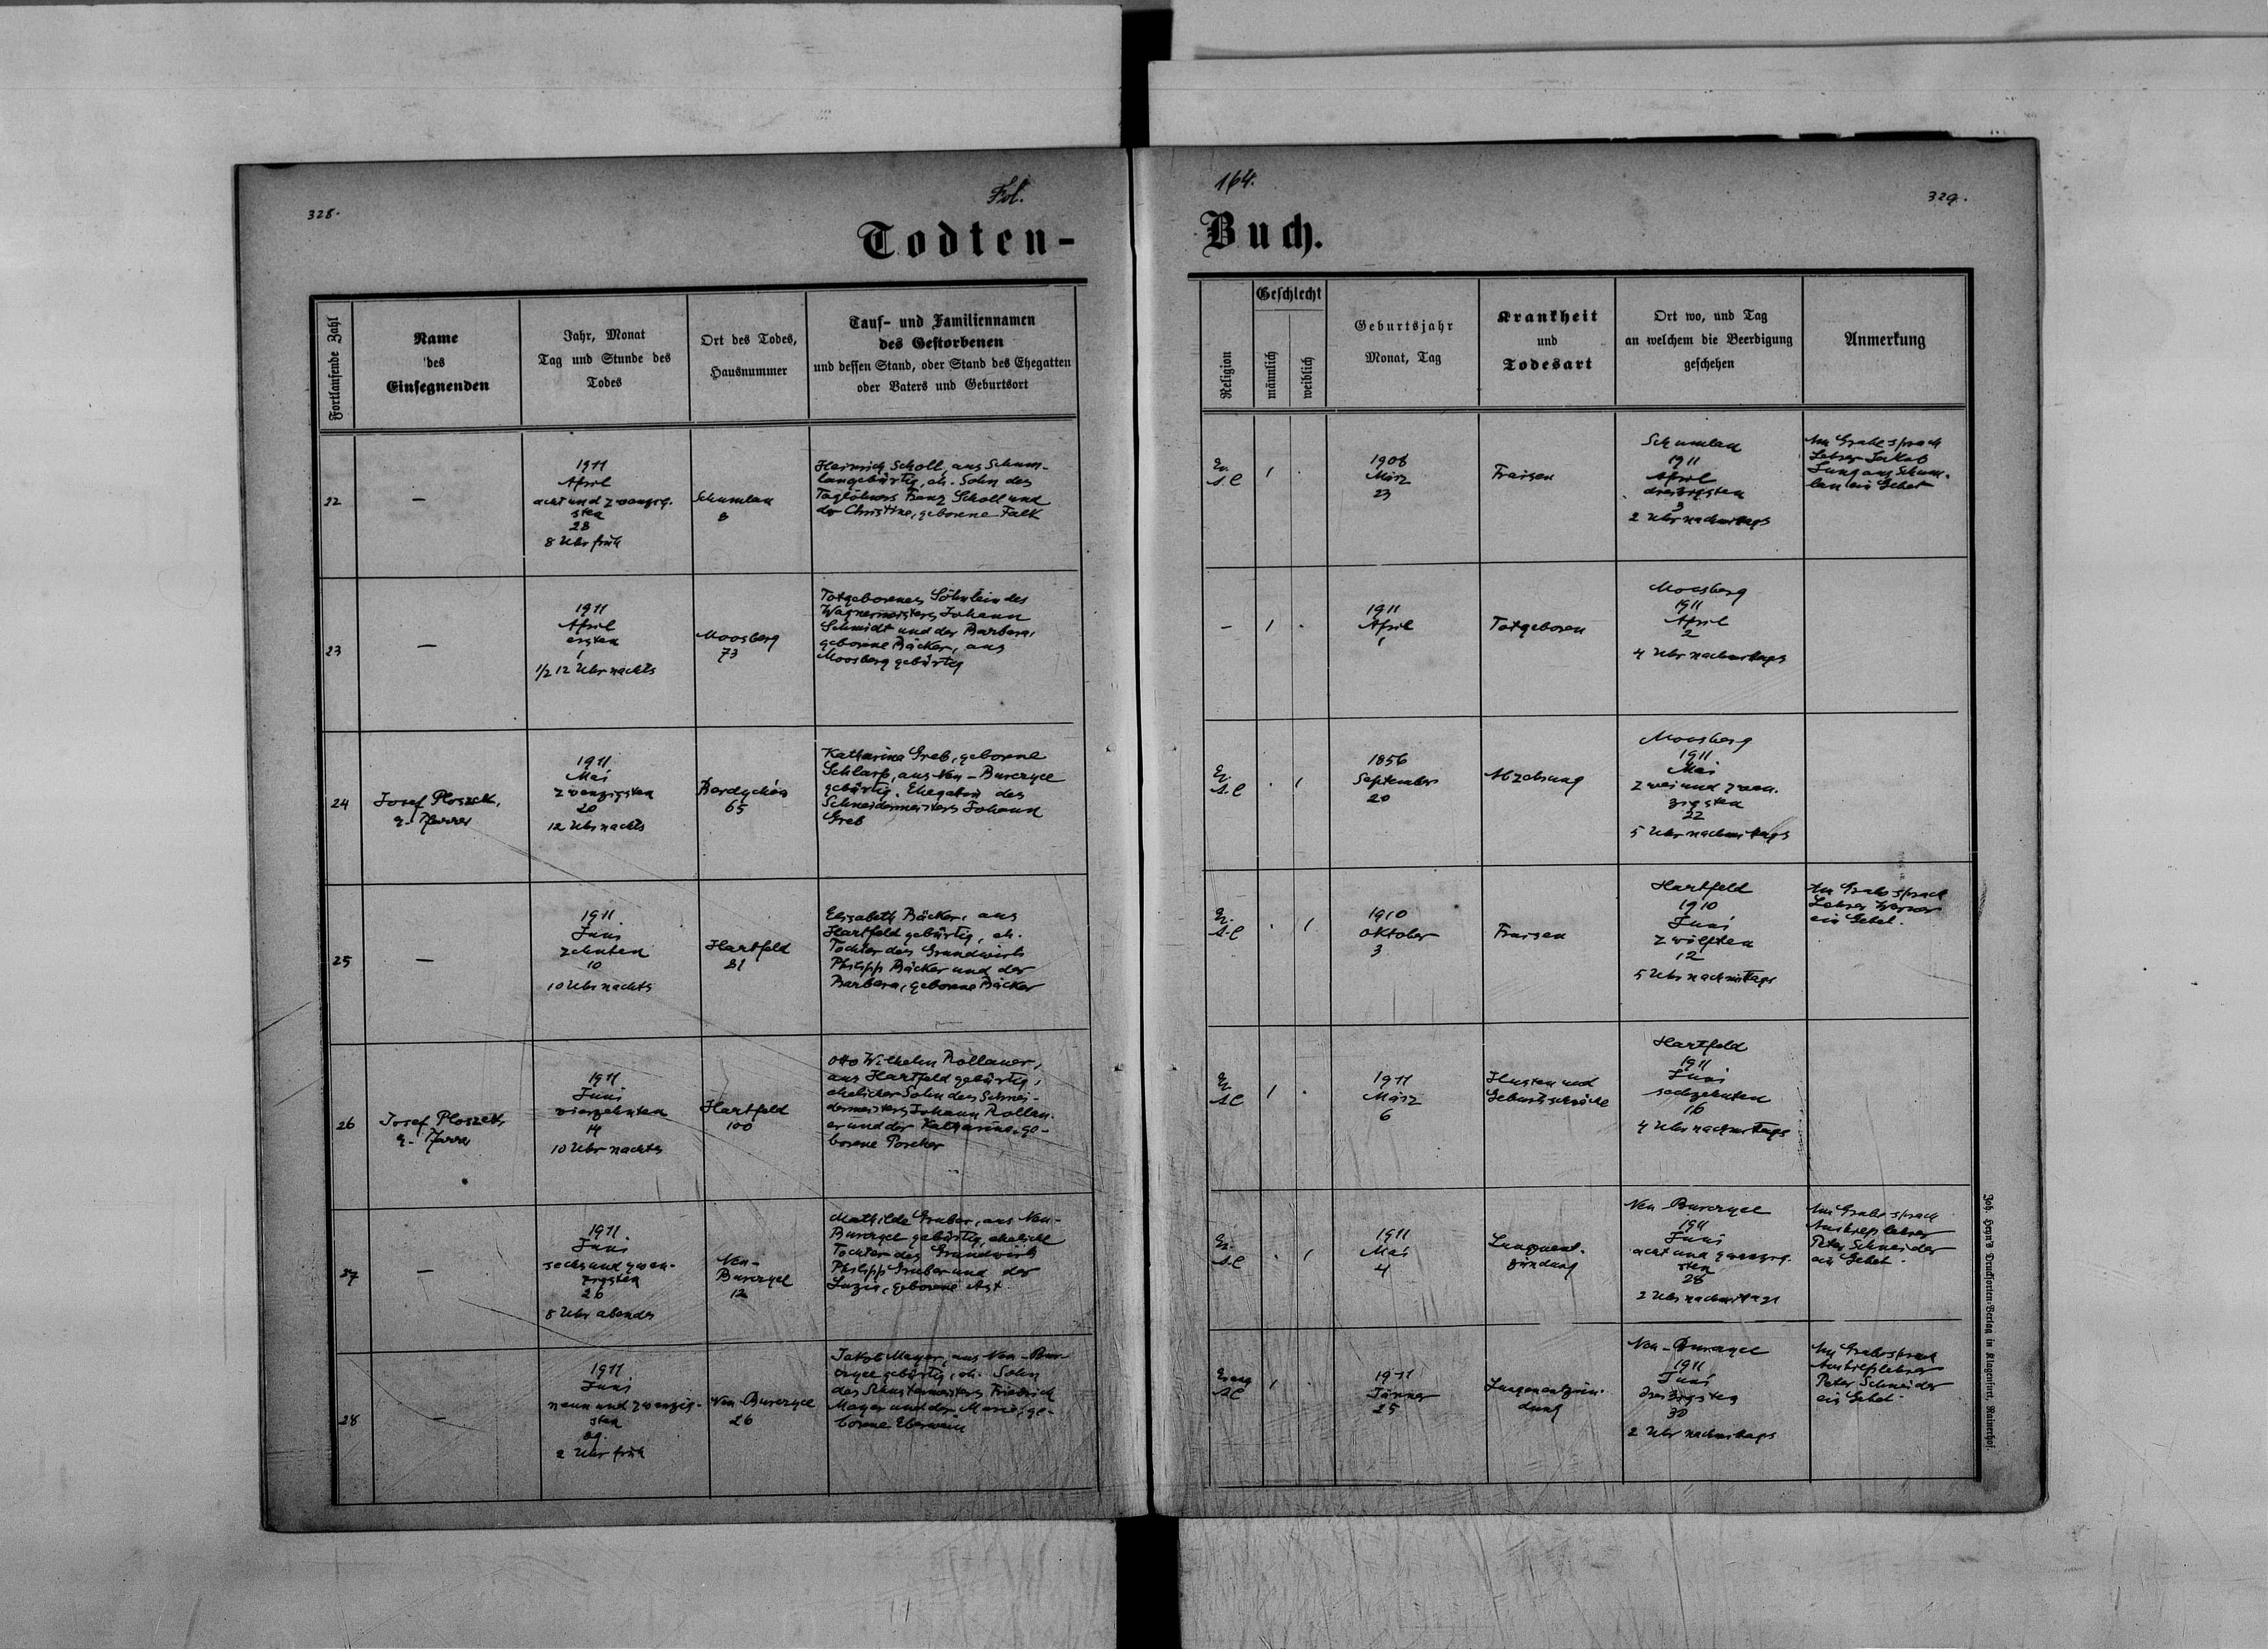 328.
Fol.
164.
329.
Todten-
Buch.
Fortlaufende Zahl
Name
des
Einsegnenden
Jahr, Monat
Tag und Stunde des
Todes
Ort des Todes,
Hausnummer
Tauf- und Familiennamen
des Gestorbenen
und dessen Stand, oder Stand des Ehegatten
oder Vaters und Geburtsort
Religion
Geschlecht
männlich
weiblich
Geburtsjahr
Monat, Tag
Krankheit
und
Todesart
Ort wo, und Tag
an welchem die Beerdigung
geschehen
Anmerkung
22
—
1911
April
acht und zwanzig-
sten
28
8 Uhr früh
Schumlau
8
Heinrich Scholl, aus Schum-
lau gebürtig, eh. Sohn des
Taglöhners Franz Scholl und
der Christine, geborene Falk
Ev.
A.C
1
.
1908
März
23
Fraisen
Schumlau
1911
April
dreizigsten
2 Uhr nachmittags
Am Grabe sprach
Lehrer Jakob
Jung aus Schum-
lau ein Gebet
23
—
1911
April
ersten
1
1/2 12 Uhr nachts
Moosberg
73
Totgeborenes Söhnlein des
Wagnermeisters Johann
Schmidt und der Barbara,
geborene Bäcker, aus
Moosberg gebürtig
–
1
.
1911
April
1
Totgeboren
Moosberg
1911
April
2
4 Uhr nachmittags
24
Josef Ploszek,
ev. Pfarrer
1911
Mai
zwanzigsten
20
12 Uhr nachts
Berdychów
65
Katharina Greb, geborene
Schlarp, aus Neu-Burczyce
gebürtig. Ehegattin des
Schneidermeisters Johann
Greb
Ev.
A.C
.
1
1856
September
20
Abzehrung
Moosberg
1911
Mai
zwei und zwan-
zigsten
22
5 Uhr nachmittags
25
—
1911
Juni
zehnten
10
10 Uhr nachts
Hartfeld
81
Elisabeth Bäcker, aus
Hartfeld gebürtig, eh.
Tochter des Grundwirts
Philipp Bäcker und der
Barbara, geborene Bäcker
Ev.
A.C
.
1
1910
Oktober
3
Fraisen
Hartfeld
1910
Juni
zwölften
12
5 Uhr nachmittags
Am Grabe sprach
Lehrer
ein Gebet.
26
Josef Ploszek,
ev. Pfarrer
1911
Juni
vierzehnten
14
10 Uhr nachts
Hartfeld
100
Otto Wilhelm Rollauer,
aus Hartfeld gebürtig,
ehelicher Sohn des Schnei-
dermeisters Johann Rollau-
er und der Katharina, ge-
borene Porcher
Ev.
A.C
1
.
1911
März
6
Husten und
Geburtsschwäche
Hartfeld
1911
Juni
sechzehnten
16
4 Uhr nachmittags
27
—
1911
Juni
sechs und zwan-
zigsten
26
8 Uhr abends
Neu-
Burczyce
12
Mathilde Gruber, aus Neu-
Burczyce gebürtig, eheliche
Tochter des Grundwirts
Philipp Gruber und der
Luzie, geborene Ast
Ev.
A.C
.
1
1911
Mai
4
Lungenent-
zündung
Neu Burczyce
1911
Juni
acht und zwanzig-
sten
28
2 Uhr nachmittags
Am Grabe sprach
Aushilfslehrer
Peter Schneider
ein Gebet.
28
—
1911
Juni
neun und zwanzig-
sten
29.
2 Uhr früh
Neu Burczyce
26
Jakob Mayer, aus Neu-Bur-
czyce gebürtig, eh. Sohn
des Schustermeisters Friedrich
Mayer und der Marie, ge-
borene Eberwein
Evang
A.C
1
.
1911
Jänner
25
Lungenentzün-
dung
Neu-Burczyce
1911
Juni
dreizigsten
30
2 Uhr nachmittags
Am Grabe sprach
Aushilfslehrer
Peter Schneider
ein Gebet.
Joh. Heyn's Drucksorten-Verlag in Klagenfurt, Rainerhof.